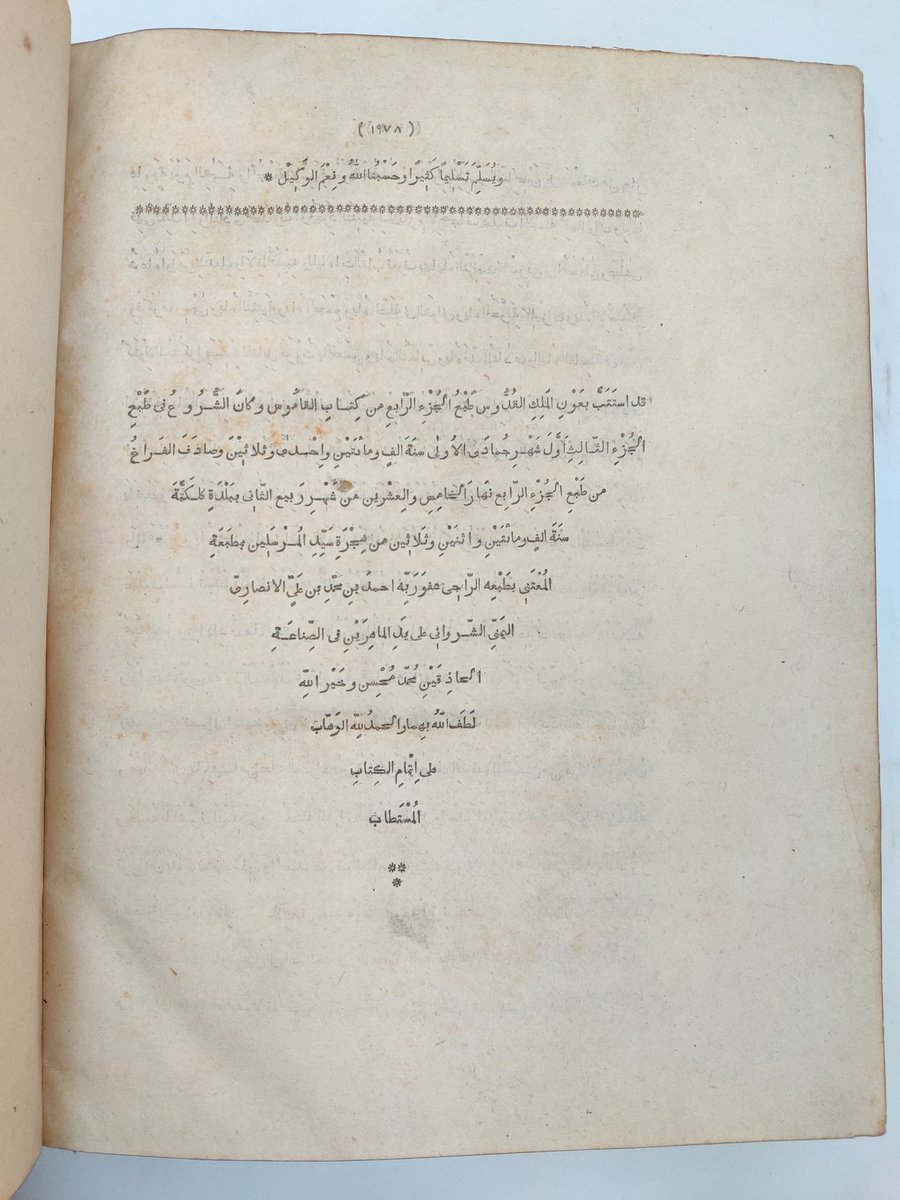 ( ١٩٧٨ )
ويُسَلِّمَ تَسْلِيمًا كَثِيرًا وحَسْبُنا اللّٰهُ ونِعْمَ الوَكِيْلُ *
قد استَتَبَّ بعَوْنِ المَلِكِ القُدُّوسِ طَبْعُ الجُزْءِ الرّابعِ من كِتابِ القامُوسِ وكانَ الشُّرُوعُ فى طَبْعِ
الجُزْءِ الثّالثِ أوَّلَ شَهْرِ جُمادَى الأُولٰى سنةَ الفٍ ومائتَيْنِ واِحْدىٰ وثلاثِيْنَ وصادَفَ الفَراغُ
من طَبْعِ الجُزْءِ الرّابعِ نهارَ الخامِسِ والعِشْرينَ مِنْ شَهْرِ رَبيعِ الثّانى ببَلْدَةِ كلكتّةَ
سنَةَ الفٍ ومائتَيْنِ واثنَيْنِ وثلاثِينَ من هِجْرَةِ سَيِّدِ المُرْسَلِين بمَطْبَعَةِ
المُعْتَنِى بطَبْعِه الرّاجِى عفوَ رَبِّه احمدَ بنِ محمّدِ بن عَلِيٍّ الانصارِىّ
اليَمَنِّى الشّرْوانِى على يَدِ الماهِرَيْنِ فى الصِّناعَةِ
الحاذِقَيْنِ مُحمّد مُحْسِن وخَيْرِ اللّٰهِ
لَطَفَ اللّٰهُ بهما والحمدُ لِلّٰهِ الوَهّابِ
على اِتْمامِ الكِتابِ
المُسْتَطابِ